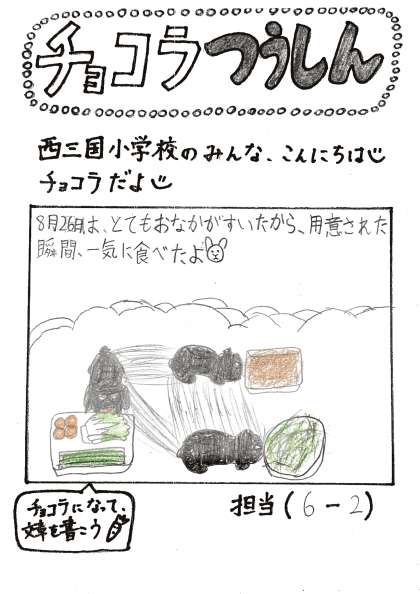 チョコラつうしん
西三国小学校のみんな、こんにちは
チョコラだよ
8月26日は、とてもおなかがすいたから、用意された
瞬間、一気に食べたよ
チョコラになって、
文章を書こう
担当(6-2)